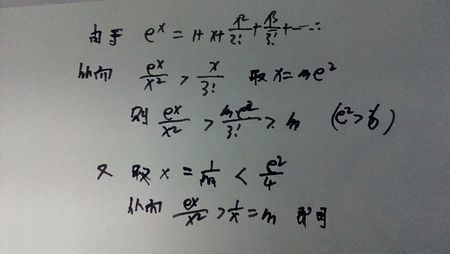 由于 e^x = 1+x+x²/2!+x³/3!+……
从而 e^x/x² > x/3! 取x=me²
则 e^x/x² > me²/3! > m (e²>6)
又 取x = 1/m < e²/4
从而 e^x/x² > 1/x = m 即可